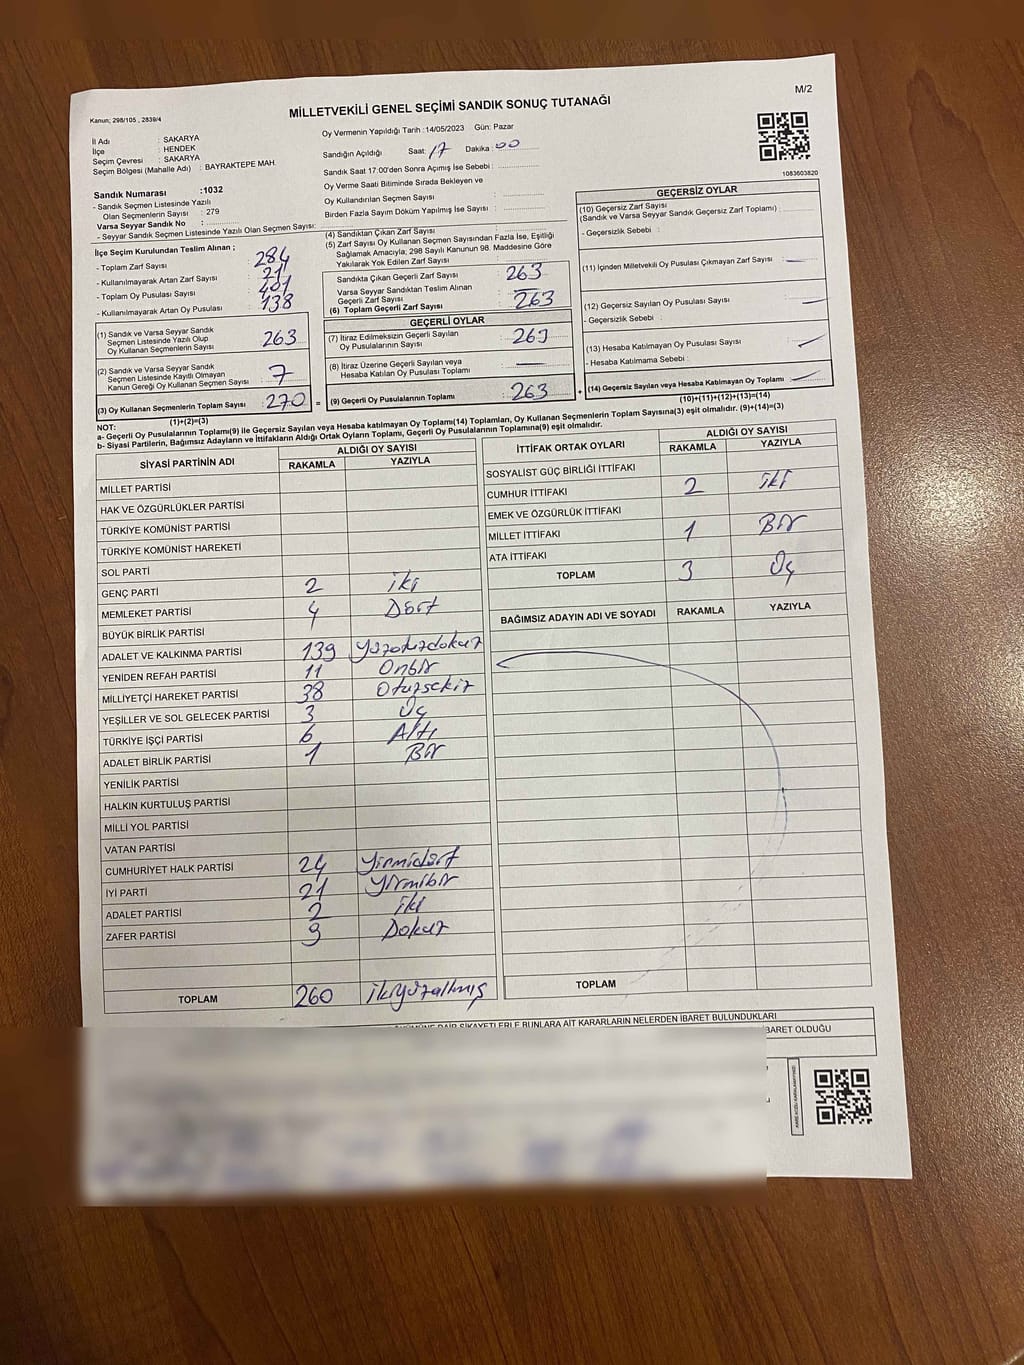 M/2
MİLLETVEKİLİ GENEL SEÇİMİ SANDIK SONUÇ TUTANAĞI
Kanun; 298/105 , 2839/4
İl Adı : SAKARYA
İlçe : HENDEK
Seçim Çevresi : SAKARYA
Seçim Bölgesi (Mahalle Adı) : BAYRAKTEPE MAH.
Oy Vermenin Yapıldığı Tarih :14/05/2023 Gün: Pazar
Sandığın Açıldığı Saat: 17 Dakika: 00
Sandık Saat 17.00'den Sonra Açımış İse Sebebi :
Oy Verme Saati Bitiminde Sırada Bekleyen ve
Oy Kullandırılan Seçmen Sayısı :
Birden Fazla Sayım Döküm Yapılmış İse Sayısı :
1083603820
Sandık Numarası :1032
- Sandık Seçmen Listesinde Yazılı
Olan Seçmenlerin Sayısı : 279
Varsa Seyyar Sandık No :
- Seyyar Sandık Seçmen Listesinde Yazılı Olan Seçmen Sayısı:
İlçe Seçim Kurulundan Teslim Alınan ;
- Toplam Zarf Sayısı : 284
- Kullanılmayarak Artan Zarf Sayısı : 21
- Toplam Oy Pusulası Sayısı : 401
- Kullanılmayarak Artan Oy Pusulası : 138
(1) Sandık ve Varsa Seyyar Sandık
Seçmen Listesinde Yazılı Olup
Oy Kullanan Seçmenlerin Sayısı : 263
(2) Sandık ve Varsa Seyyar Sandık
Seçmen Listesinde Kayıtlı Olmayan
Kanun Gereği Oy Kullanan Seçmen Sayısı : 7
(3) Oy Kullanan Seçmenlerin Toplam Sayısı : 270
(1)+(2)=(3)
(4) Sandıktan Çıkan Zarf Sayısı :
(5) Zarf Sayısı Oy Kullanan Seçmen Sayısından Fazla İse, Eşitliği
Sağlamak Amacıyla; 298 Sayılı Kanunun 98. Maddesine Göre
Yakılarak Yok Edilen Zarf Sayısı :
Sandıkta Çıkan Geçerli Zarf Sayısı : 263
Varsa Seyyar Sandıktan Teslim Alınan
Geçerli Zarf Sayısı :
(6) Toplam Geçerli Zarf Sayısı : 263
GEÇERLİ OYLAR
(7) İtiraz Edilmeksizin Geçerli Sayılan
Oy Pusulalarının Sayısı : 263
(8) İtiraz Üzerine Geçerli Sayılan veya
Hesaba Katılan Oy Pusulası Toplamı :
= (9) Geçerli Oy Pusulalarının Toplamı : 263
GEÇERSİZ OYLAR
(10) Geçersiz Zarf Sayısı
(Sandık ve Varsa Seyyar Sandık Geçersiz Zarf Toplamı) :
- Geçersizlik Sebebi :
(11) İçinden Milletvekili Oy Pusulası Çıkmayan Zarf Sayısı :
(12) Geçersiz Sayılan Oy Pusulası Sayısı :
- Geçersizlik Sebebi :
(13) Hesaba Katılmayan Oy Pusulası Sayısı :
- Hesaba Katılmama Sebebi :
+ (14) Geçersiz Sayılan veya Hesaba Katılmayan Oy Toplamı :
(10)+(11)+(12)+(13)=(14)
NOT:
a- Geçerli Oy Pusulalarının Toplamı(9) ile Geçersiz Sayılan veya Hesaba katılmayan Oy Toplamı(14) Toplamları, Oy Kullanan Seçmenlerin Toplam Sayısına(3) eşit olmalıdır. (9)+(14)=(3)
b- Siyasi Partilerin, Bağımsız Adayların ve İttifakların Aldığı Ortak Oyların Toplamı, Geçerli Oy Pusulalarının Toplamına(9) eşit olmalıdır.
SİYASİ PARTİNİN ADI ALDIĞI OY SAYISI
RAKAMLA YAZIYLA
MİLLET PARTİSİ
HAK VE ÖZGÜRLÜKLER PARTİSİ
TÜRKİYE KOMÜNİST PARTİSİ
TÜRKİYE KOMÜNİST HAREKETİ
SOL PARTİ
GENÇ PARTİ 2 iki
MEMLEKET PARTİSİ 4 Dört
BÜYÜK BİRLİK PARTİSİ
ADALET VE KALKINMA PARTİSİ 139 yüzotuzdokuz
YENİDEN REFAH PARTİSİ 11 Onbir
MİLLİYETÇİ HAREKET PARTİSİ 38 Otuzsekiz
YEŞİLLER VE SOL GELECEK PARTİSİ 3 Üç
TÜRKİYE İŞÇİ PARTİSİ 6 Altı
ADALET BİRLİK PARTİSİ 1 Bir
YENİLİK PARTİSİ
HALKIN KURTULUŞ PARTİSİ
MİLLİ YOL PARTİSİ
VATAN PARTİSİ
CUMHURİYET HALK PARTİSİ 24 Yirmidört
İYİ PARTİ 21 Yirmibir
ADALET PARTİSİ 2 iki
ZAFER PARTİSİ 9 Dokuz
TOPLAM 260 ikiyüzaltmış
İTTİFAK ORTAK OYLARI ALDIĞI OY SAYISI
RAKAMLA YAZIYLA
SOSYALİST GÜÇ BİRLİĞİ İTTİFAKI
CUMHUR İTTİFAKI 2 iki
EMEK VE ÖZGÜRLÜK İTTİFAKI
MİLLET İTTİFAKI 1 Bir
ATA İTTİFAKI
TOPLAM 3 Üç
BAĞIMSIZ ADAYIN ADI VE SOYADI RAKAMLA YAZIYLA
TOPLAM
ŞİKAYETLERLE BUNLARA AİT KARARLARIN NELERDEN İBARET BULUNDUKLARI
İBARET OLDUĞU